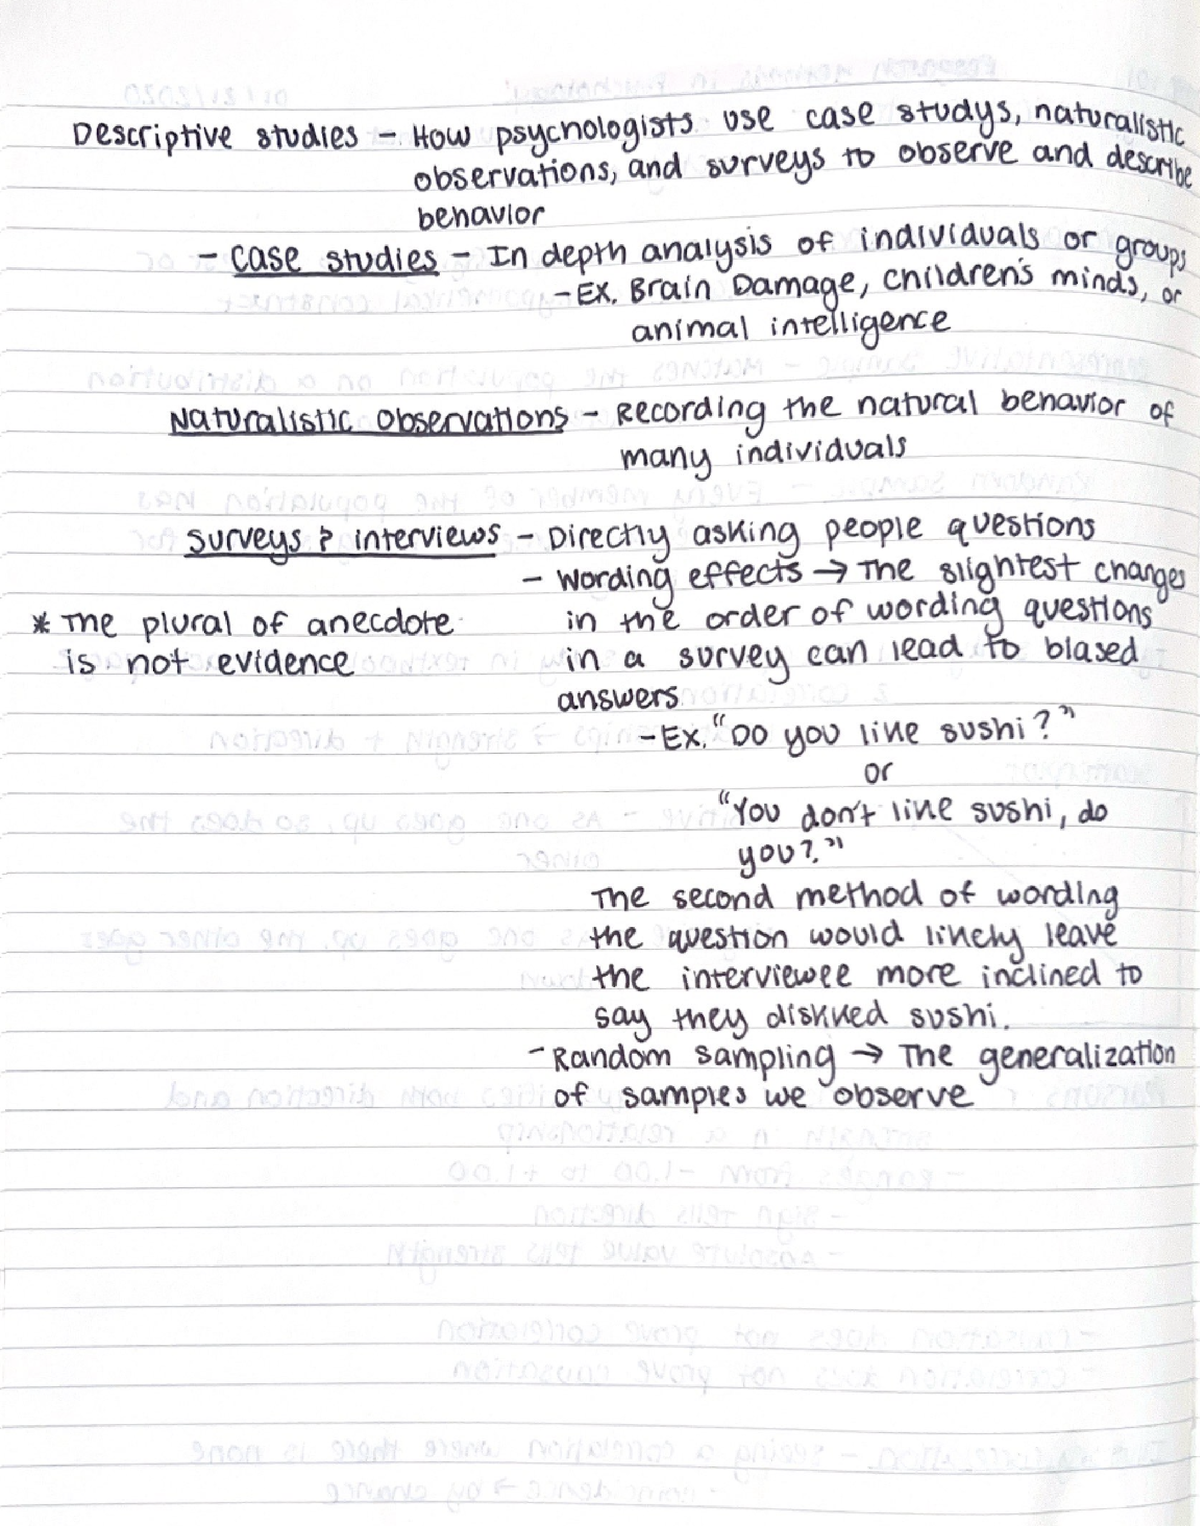 Descriptive studies - How psychologists use case studys, naturalistic
observations, and surveys to observe and describe
behavior
- Case studies - In depth analysis of individuals or groups
- Ex. Brain Damage, children's minds, or
animal intelligence
Naturalistic Observations - Recording the natural behavior of
many individuals
Surveys & interviews - Directly asking people questions
- Wording effects → The slightest changes
in the order of wording questions
in a survey can lead to biased
answers
* The plural of anecdote
is not evidence
- Ex. "Do you like sushi?"
or
"You don't like sushi, do
you?."
The second method of wording
the question would likely leave
the interviewee more inclined to
say they disliked sushi.
- Random sampling → The generalization
of samples we observe